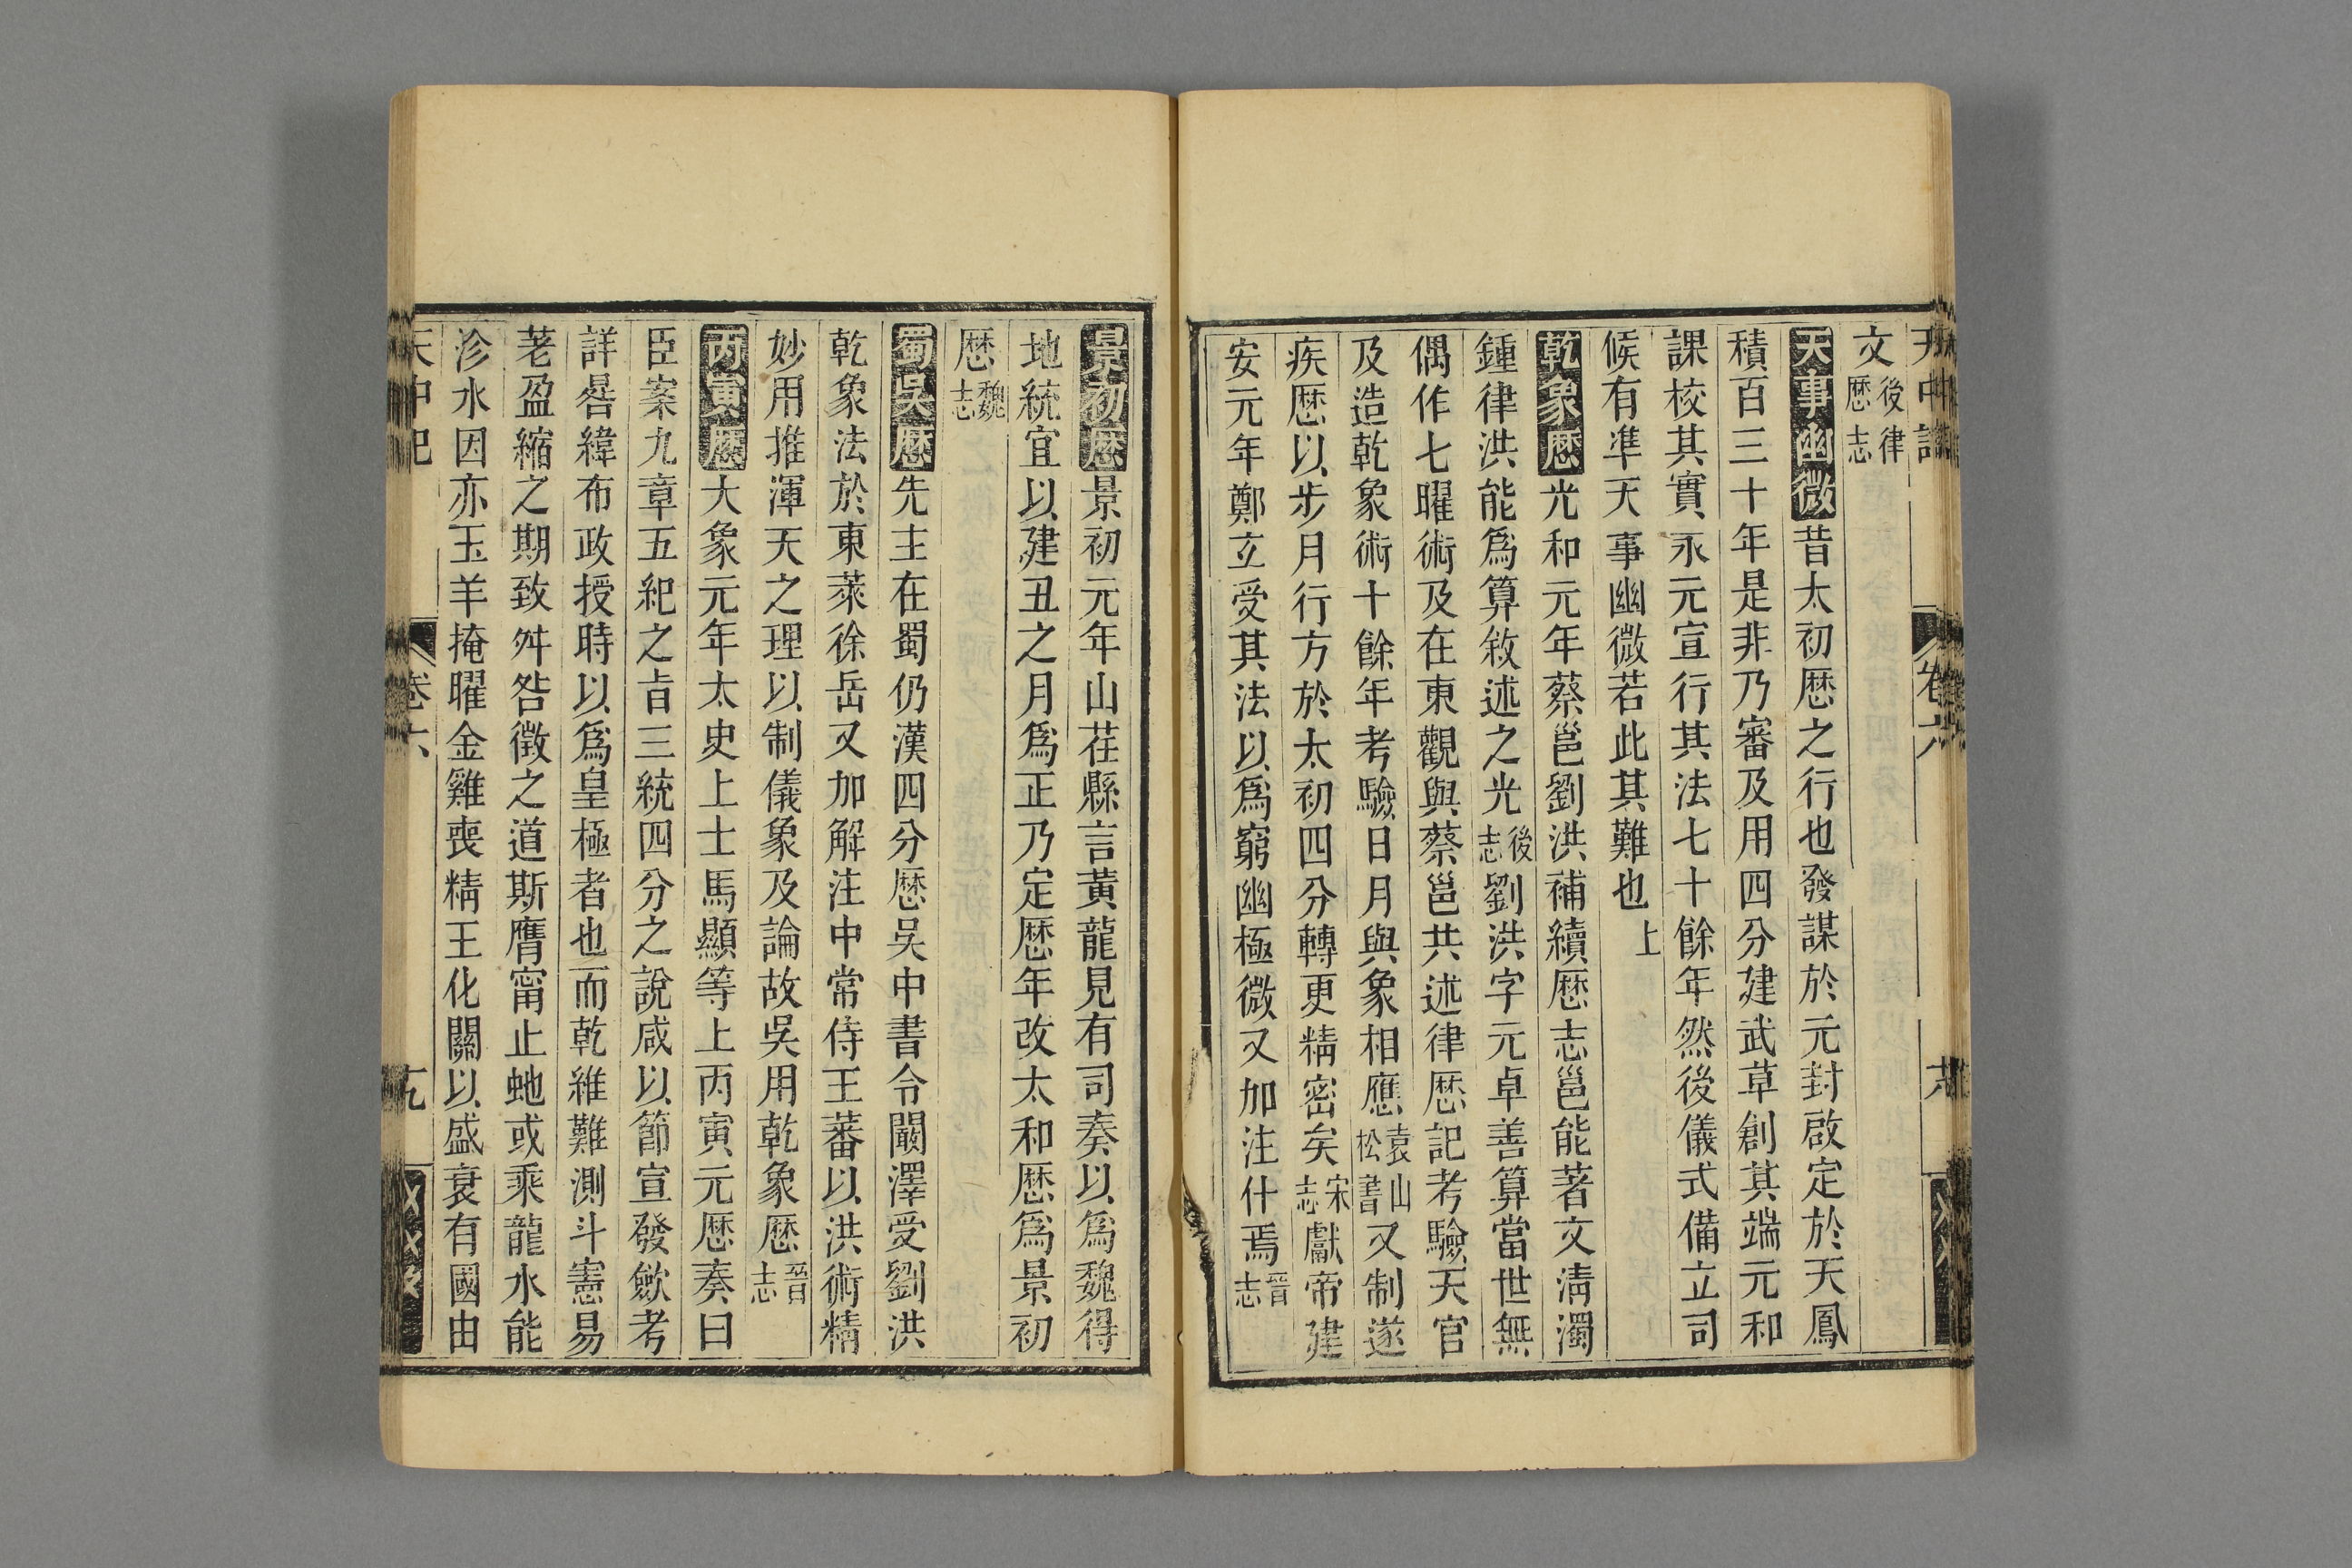 文後律歷志
天事幽微昔太初歷之行也發謀於元封啟定於天鳳
積百三十年是非乃審及用四分建武草創其端元和
課校其實永元宣行其法七十餘年然後儀式備立司
候有準天事幽微若此其難也上
乾象歷光和元年蔡邕劉洪補續歷志邕能著文淸濁
鍾律洪能爲算敘述之光後志劉洪字元卓善算當世無
偶作七曜術及在東觀與蔡邕共述律歷記考驗天官
及造乾象術十餘年考驗日月與象相應袁山松書又制遂
疾歷以步月行方於太初四分轉更精密矣宋志獻帝建
安元年鄭玄受其法以爲窮幽極微又加注什焉晉志
景初歷景初元年山茌縣言黃龍見有司奏以爲魏得
地統宜以建丑之月爲正乃定歷年改太和歷爲景初
歷魏志
蜀吳歷先主在蜀仍漢四分歷吳中書令闞澤受劉洪
乾象法於東萊徐岳又加解注中常侍王蕃以洪術精
妙用推渾天之理以制儀象及論故吳用乾象歷晉志
丙寅歷大象元年太史上士馬顯等上丙寅元歷奏曰
臣案九章五紀之旨三統四分之說咸以節宣發歛考
詳晷緯布政授時以爲皇極者也而乾維難測斗憲易
差盈縮之期致舛咎徵之道斯膺甯止虵或乘龍水能
沴水因亦玉羊掩曜金雞喪精王化關以盛衰有國由
天中記
卷六
九